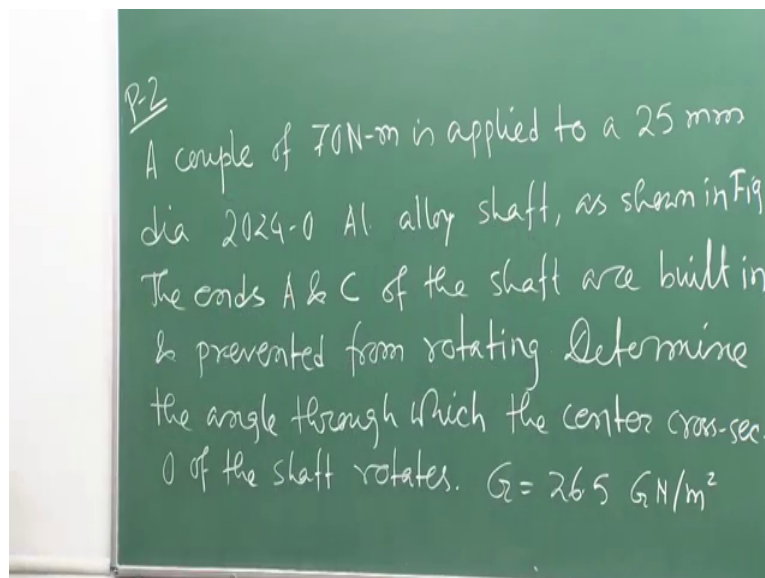 P-2
A couple of 70N-m is applied to a 25 mm
dia 2024-0 Al. alloy shaft, as shown in Fig
The ends A & C of the shaft are built in
& prevented from rotating. Determine
the angle through which the center cross-sec.
O of the shaft rotates. G = 26.5 GN/m²